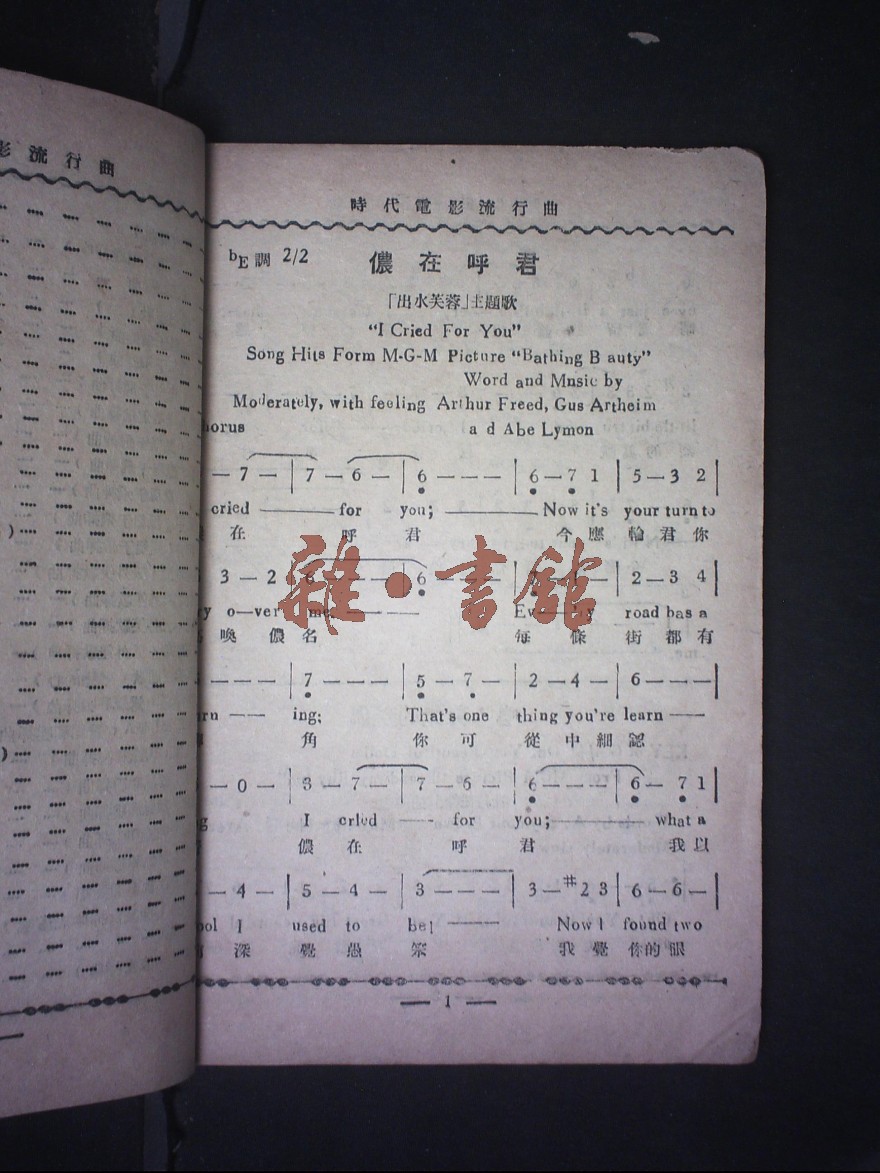 影流行曲
時代電影流行曲
bE調 2/2 儂在呼君
「出水芙蓉」主題歌
“I Cried For You”
Song Hits Form M-G-M Picture “Bathing B auty”
Word and Mnsic by
Moderately, with feeling Arthur Freed, Gus Artheim
horus a d Abe Lymon
— 7 — | 7 — 6 — | 6 — — — | 6 — 7 1 | 5 — 3 2 |
cried ——— for you; ——— Now it's your turn to
在 呼 君 今 應 輪 君 你
雜·書館
3 — 2 6 — — — | 6 — — — | 2 — 3 4 |
y o—ver me. — — — road bas a
喚 儂 名 每 條 街 都 有
— — — | 7 — — — | 5 — 7 — | 2 — 4 — | 6 — — — |
rn —— ing; That's one thing you're learn ——
角 你 可 從 中 細 認
— 0 — | 3 — 7 — | 7 — 6 — | 6 — — — | 6 — 7 1 |
g I crled —— - for you; ——— what a
儂 在 呼 君 我 以
— 4 — | 5 — 4 — | 3 — — — | 3 — #2 3 | 6 — 6 — |
ool I used to be! —— Now I found two
深 覺 愚 笨 我 覺 你 的 眼
— 1 —